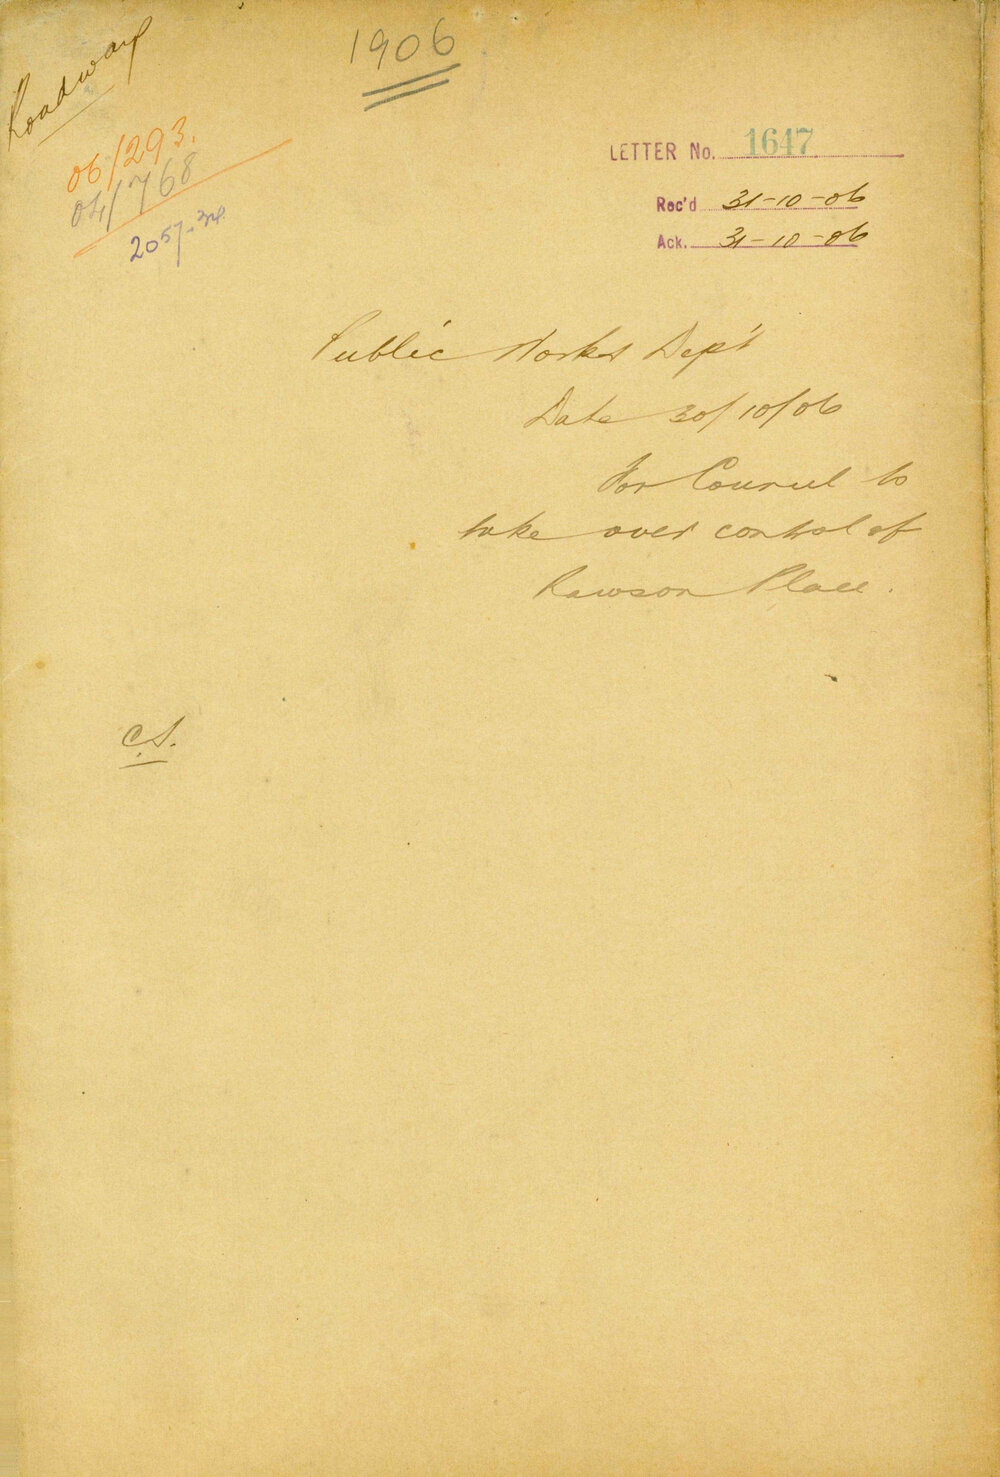 Roadway
1906
06/293.
04/768
2057.34
LETTER No. 1647
Rec'd 31-10-06
Ack. 31-10-06
Public Works Dep't
Date 30/10/06
For Council to
take over control of
Rawson Place.
C.S.